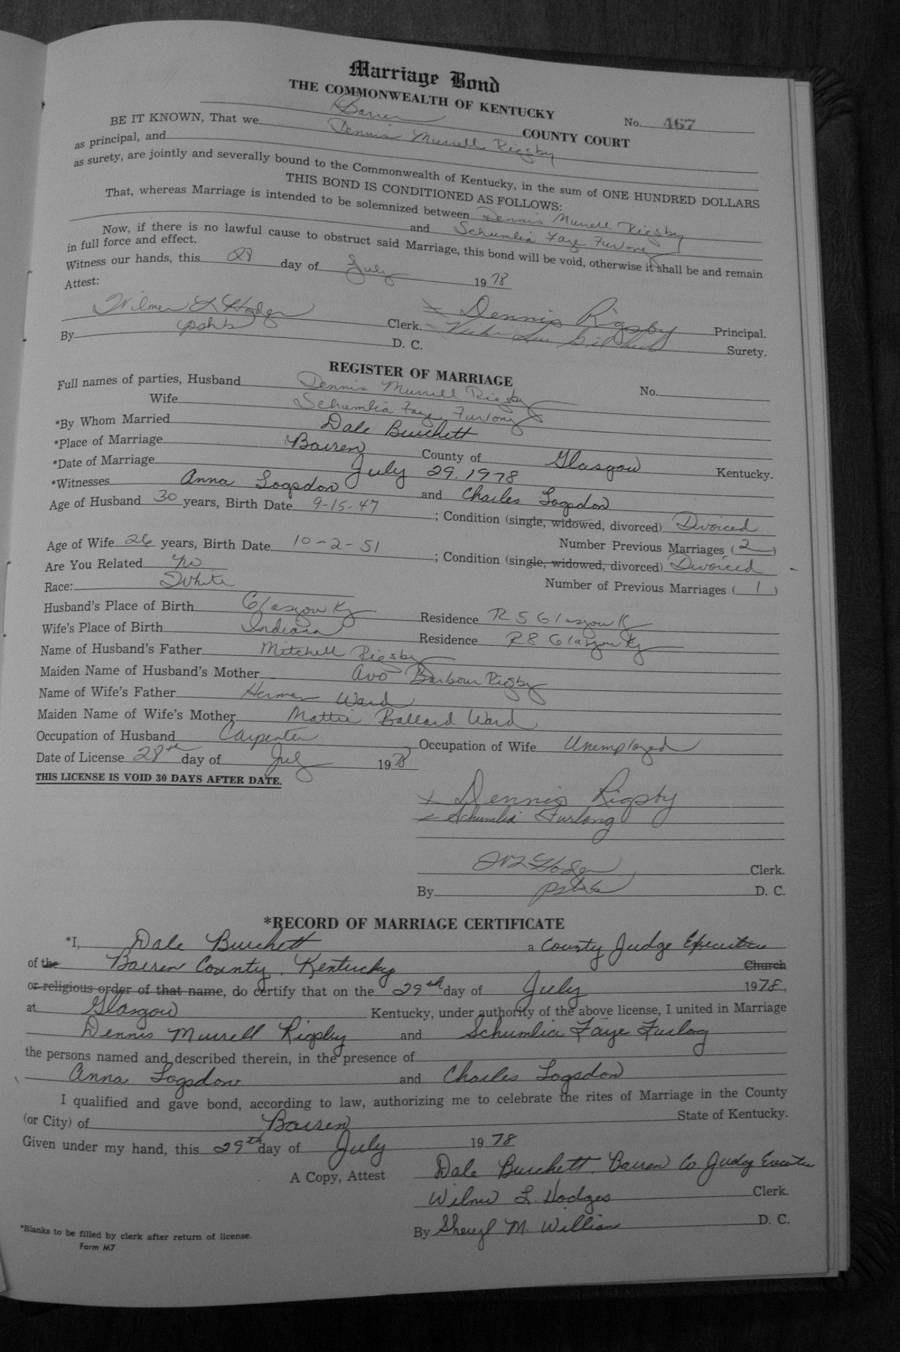 Marriage Bond
THE COMMONWEALTH OF KENTUCKY
No. 467
Barren COUNTY COURT
BE IT KNOWN, That we Dennis Murrell Rigsby
as principal, and
as surety, are jointly and severally bound to the Commonwealth of Kentucky, in the sum of ONE HUNDRED DOLLARS
THIS BOND IS CONDITIONED AS FOLLOWS:
That, whereas Marriage is intended to be solemnized between Dennis Murrell Rigsby
and Schumlia Faye Furlong
Now, if there is no lawful cause to obstruct said Marriage, this bond will be void, otherwise it shall be and remain
in full force and effect.
Witness our hands, this 28 day of July 1978
Attest:
Wilmer L Hodges Clerk. x Dennis Rigsby Principal.
By D. C. Surety.
REGISTER OF MARRIAGE
Full names of parties, Husband Dennis Murrell Rigsby No.
Wife Schumlia Faye Furlong
*By Whom Married Dale Burchett
*Place of Marriage Barren County of Glasgow Kentucky.
*Date of Marriage July 29, 1978
*Witnesses Anna Logsdon and Charles Logsdon
Age of Husband 30 years, Birth Date 9-15-47; Condition (single, widowed, divorced) Divorced
Number Previous Marriages (2)
Age of Wife 26 years, Birth Date 10-2-51; Condition (single, widowed, divorced) Divorced
Are You Related No Number of Previous Marriages (1)
Race: White
Husband's Place of Birth Glasgow Ky Residence R 5 Glasgow K
Wife's Place of Birth Indiana Residence R8 Glasgow Ky
Name of Husband's Father Mitchell Rigsby
Maiden Name of Husband's Mother Avo Barbour Rigsby
Name of Wife's Father Herman Ward
Maiden Name of Wife's Mother Mattie Ballard Ward
Occupation of Husband Carpenter Occupation of Wife Unemployed
Date of License 28th day of July 1978
THIS LICENSE IS VOID 30 DAYS AFTER DATE.
x Dennis Rigsby
x Schumlia Furlong
Clerk.
By D. C.
*RECORD OF MARRIAGE CERTIFICATE
*I, Dale Burchett a County Judge Executive
of the Barren County, Kentucky Church
or religious order of that name, do certify that on the 29th day of July 1978,
at Glasgow Kentucky, under authority of the above license, I united in Marriage
Dennis Murrell Rigsby and Schumlia Faye Furlog
the persons named and described therein, in the presence of
Anna Logsdon and Charles Logsdon
I qualified and gave bond, according to law, authorizing me to celebrate the rites of Marriage in the County
(or City) of Barren State of Kentucky.
Given under my hand, this 29th day of July 1978
A Copy, Attest Dale Burchett, Barren Co Judge Executive
Wilmer L. Hodges Clerk.
By Sheryl M. Willian D. C.
*Blanks to be filled by clerk after return of license.
Form M7